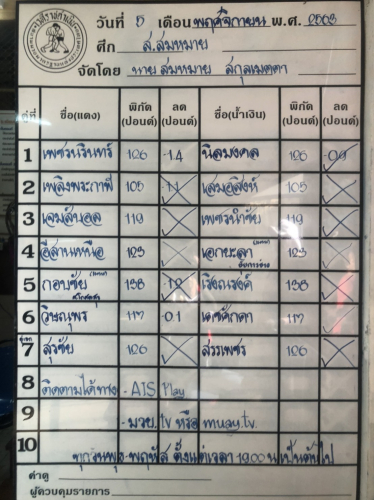 วันที่ 5 เดือน พฤศจิกายน พ.ศ. 2563
ศึก ส.สมหมาย
จัดโดย นายสมหมาย สกุลเมตตา
คู่ที่ ชื่อ(แดง) พิกัด (ปอนด์) ลด (ปอนด์) ชื่อ(น้ำเงิน) พิกัด (ปอนด์) ลด (ปอนด์)
1 เพชรนรินทร์ 126 -1.4 นิลมงคล 126
2 เพลิงพระกาฬ 105 -1.1 เสมอสิงห์ 105
3 เจมส์บอล 119 เพชรนำชัย 119
4 อีสานเหนือ 123 เอกยะลา 123
5 กอบชัย 138 -1.2 เริงณรงค์ 138
6 วิษณุพร 117 -0.1 เดชศักดา 117
คู่เอก
7 สุรชัย 126 สรรเพชร 126
8 ติดตามได้ทาง - AIS Play
9 - มวย.tv หรือ muay.tv
10 ทุกวันพุธ-พฤหัส ตั้งแต่เวลา 19.00 น เป็นต้นไป
ค่าดู
ผู้ควบคุมรายการ